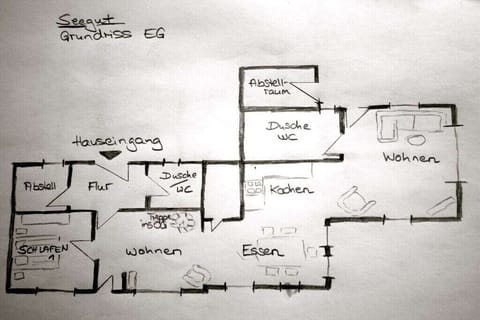 Seegut
Grundriss EG
Abstell-
raum
Dusche
WC
Wohnen
Hauseingang
Abstell
Flur
Dusche
WC
Kochen
Treppe
ins OG
SCHLAFEN
1
Wohnen
Essen